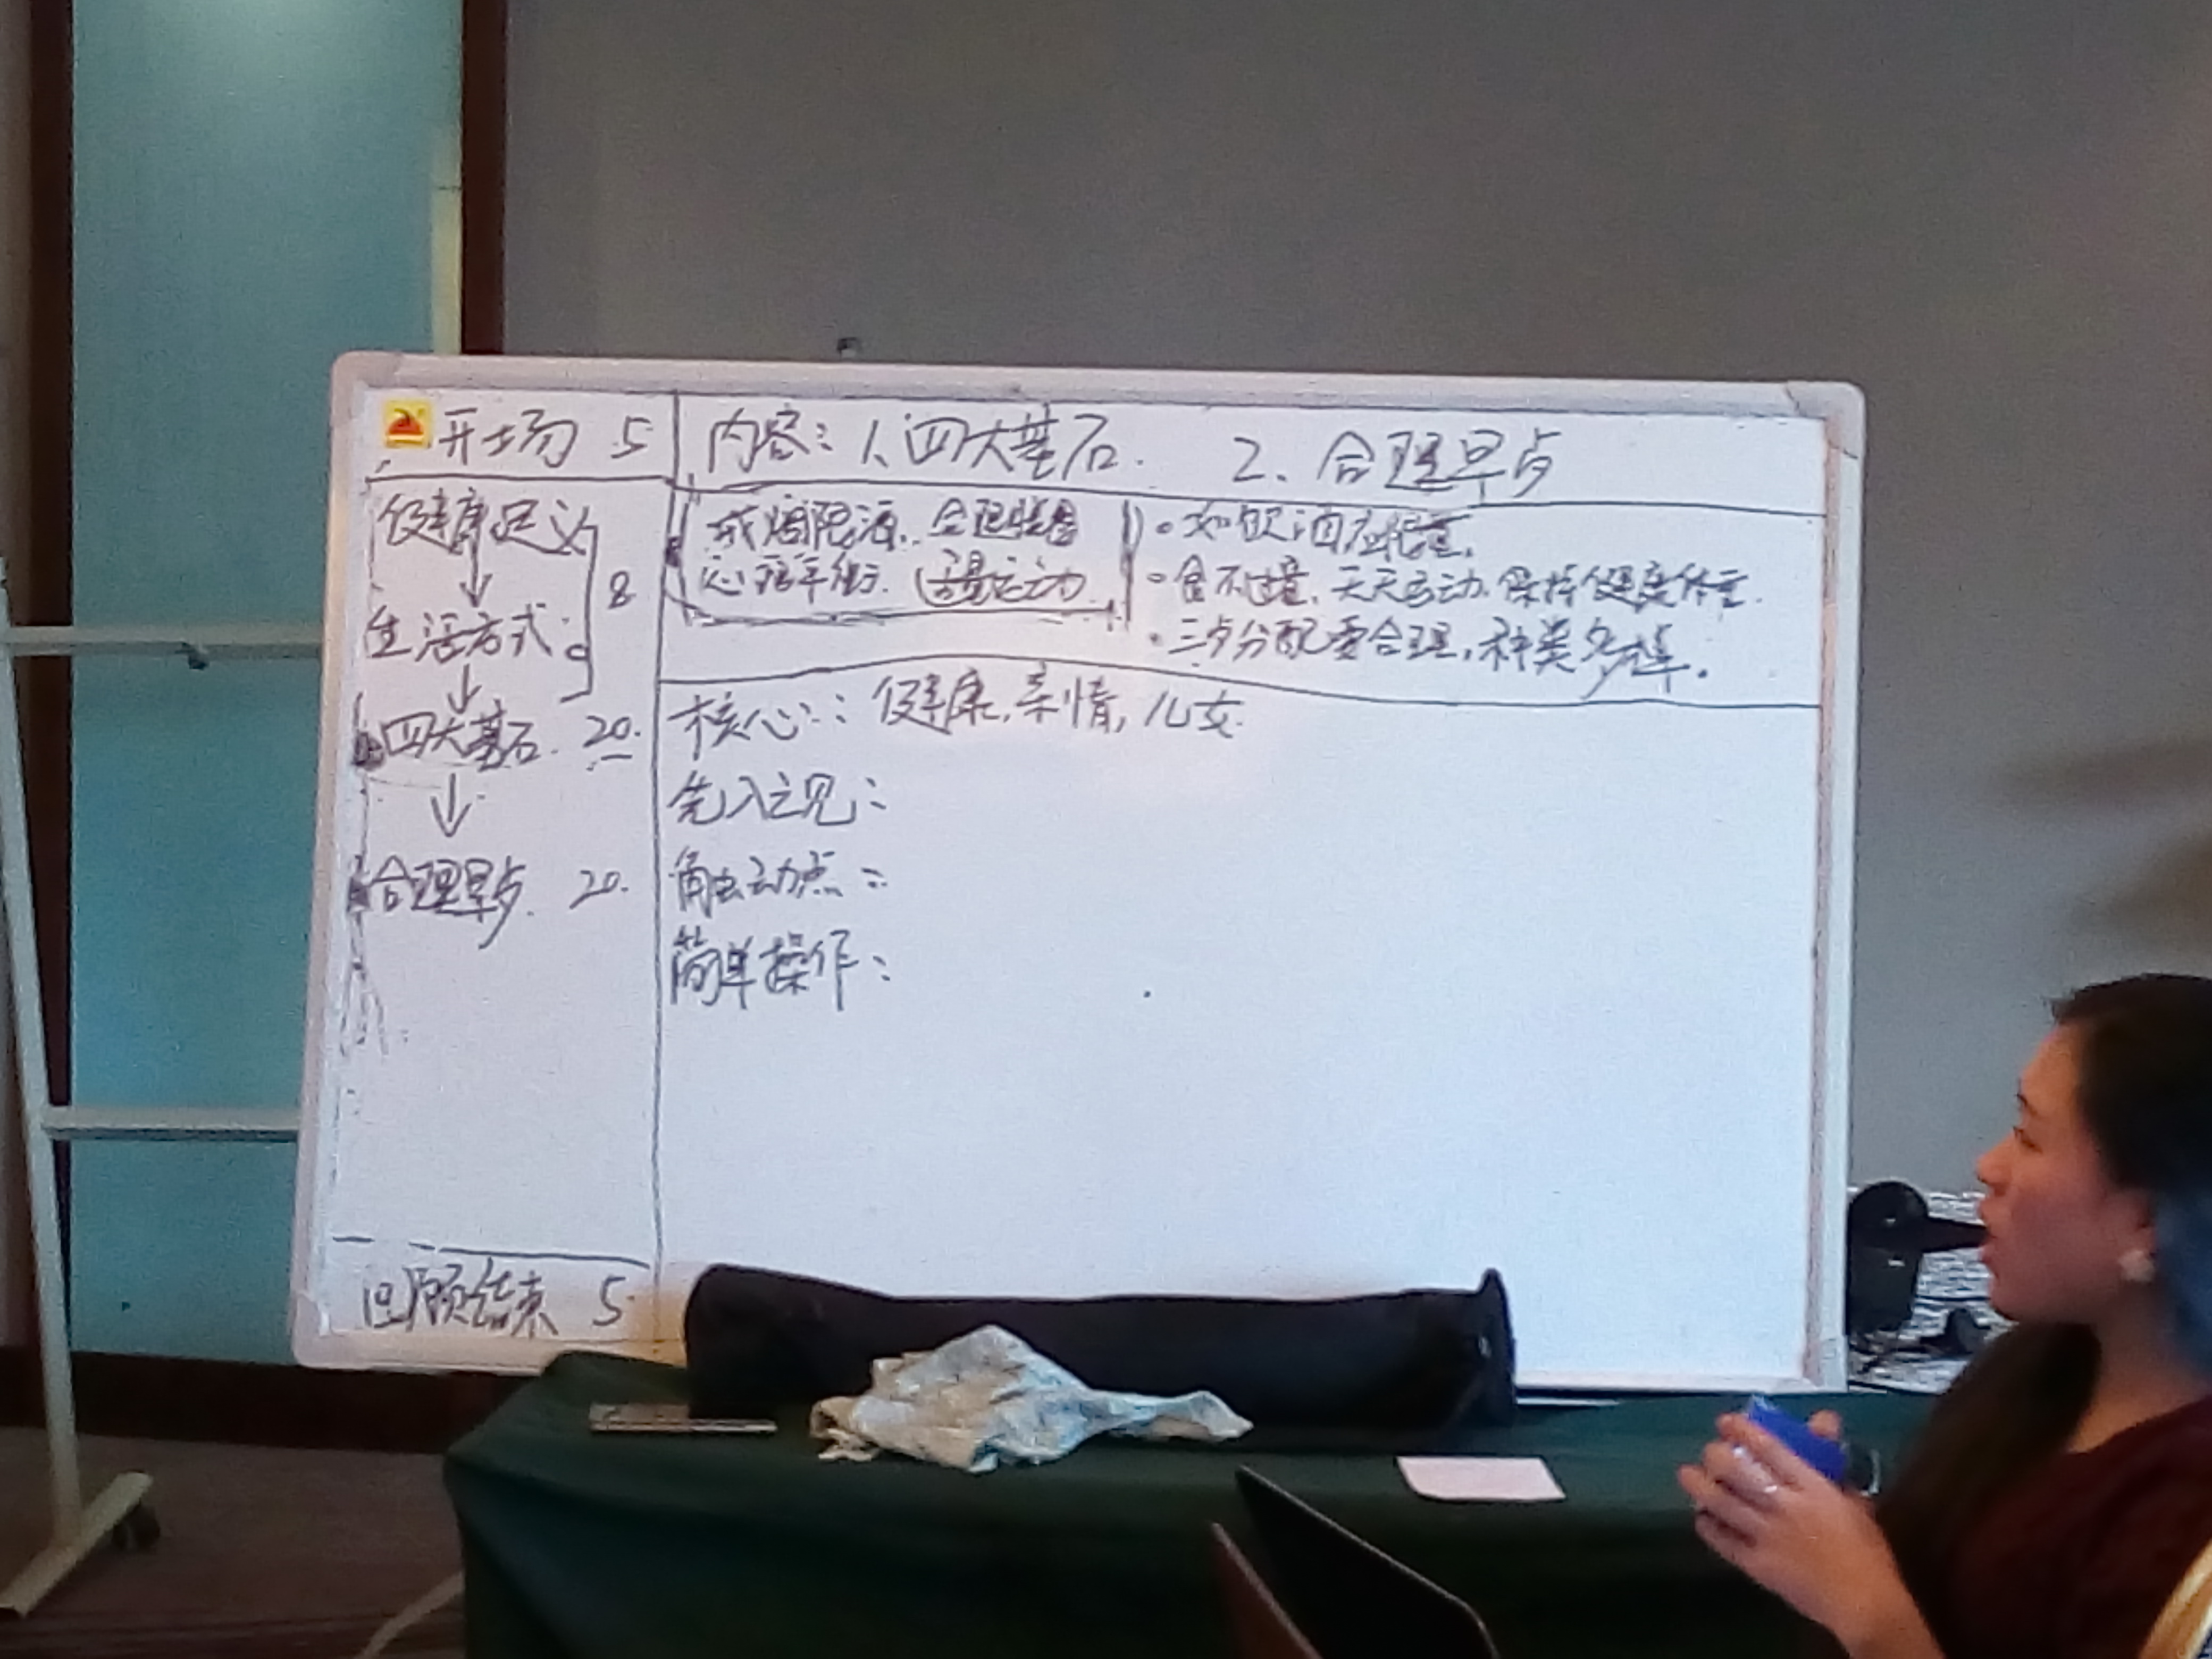 开场 5
健康定义
8
生活方式
四大基石. 20.
合理早点. 20.
回顾结束 5
内容: 1、四大基石. 2、合理早点
戒烟限酒. 合理膳食
心理平衡. 适量运动
• 如饮酒应限量.
• 食不过量, 天天运动, 保持健康体重.
• 三点分配要合理, 种类多样.
核心: 健康, 亲情, 儿女.
先入之见:
触动点:
简单操作: